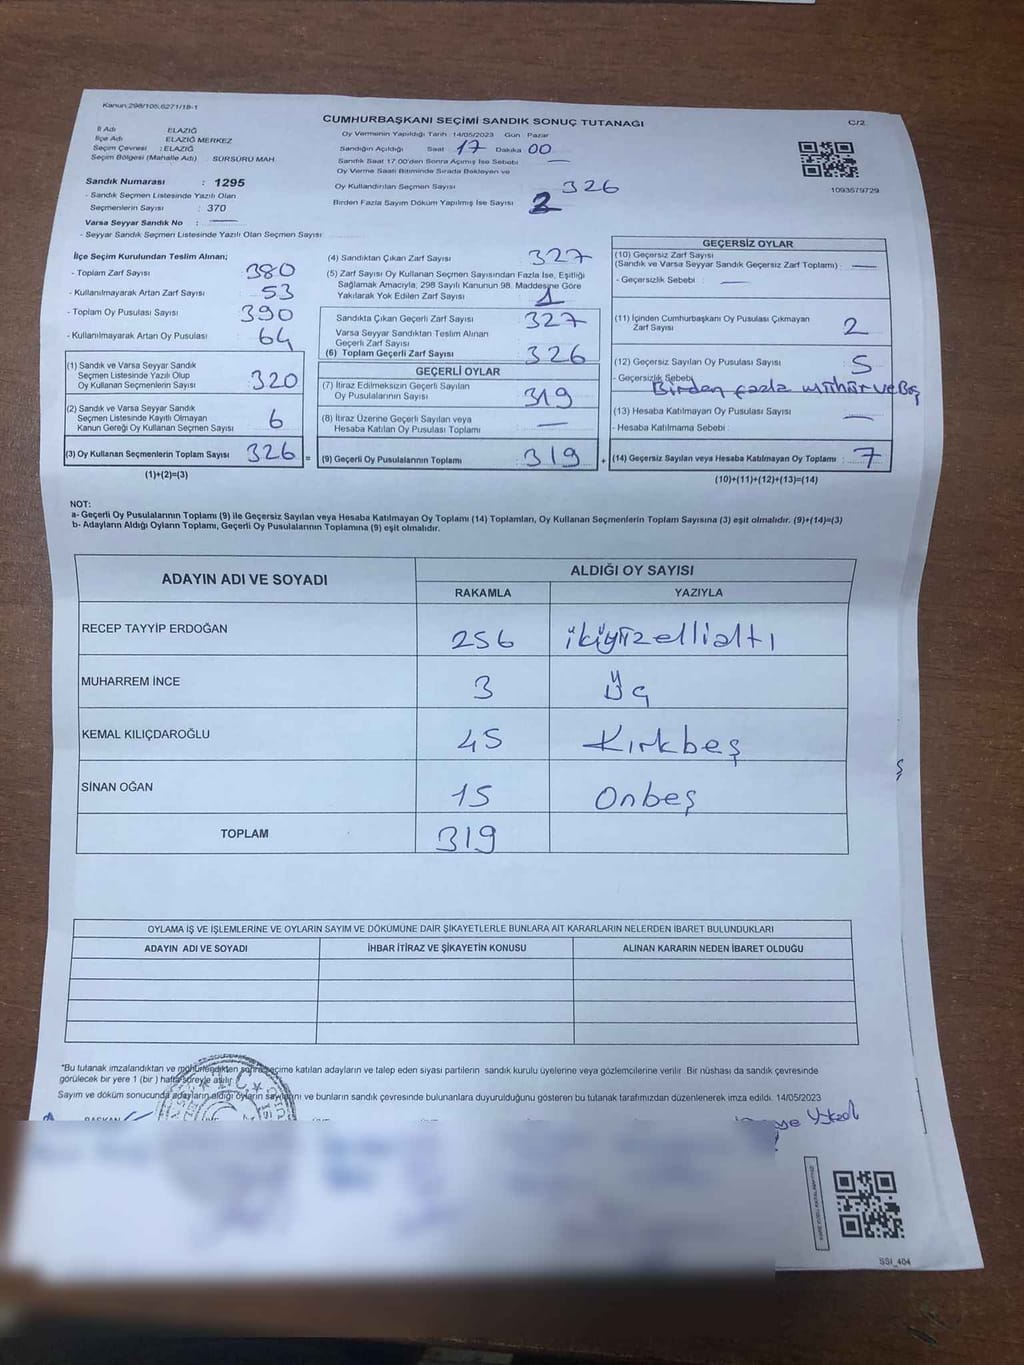 Kanun:298/105,6271/18-1
CUMHURBAŞKANI SEÇİMİ SANDIK SONUÇ TUTANAĞI
C/2
İl Adı ELAZIĞ
İlçe Adı ELAZIĞ MERKEZ
Seçim Çevresi : ELAZIĞ
Seçim Bölgesi (Mahalle Adı) SÜRSÜRÜ MAH.
Sandık Numarası : 1295
- Sandık Seçmen Listesinde Yazılı Olan
Seçmenlerin Sayısı : 370
Varsa Seyyar Sandık No : —
- Seyyar Sandık Seçmen Listesinde Yazılı Olan Seçmen Sayısı
Oy Vermenin Yapıldığı Tarih :14/05/2023 Gün : Pazar
Sandığın Açıldığı Saat 17 Dakika 00
Sandık Saat 17.00'den Sonra Açımış İse Sebebi —
Oy Verme Saati Bitiminde Sırada Bekleyen ve
Oy Kullandırılan Seçmen Sayısı 326
Birden Fazla Sayım Döküm Yapılmış İse Sayısı 2
1093579729
İlçe Seçim Kurulundan Teslim Alınan;
- Toplam Zarf Sayısı 380
- Kullanılmayarak Artan Zarf Sayısı 53
- Toplam Oy Pusulası Sayısı 390
- Kullanılmayarak Artan Oy Pusulası 64
(1) Sandık ve Varsa Seyyar Sandık
Seçmen Listesinde Yazılı Olup
Oy Kullanan Seçmenlerin Sayısı 320
(2) Sandık ve Varsa Seyyar Sandık
Seçmen Listesinde Kayıtlı Olmayan
Kanun Gereği Oy Kullanan Seçmen Sayısı 6
(3) Oy Kullanan Seçmenlerin Toplam Sayısı 326 =
(1)+(2)=(3)
(4) Sandıktan Çıkan Zarf Sayısı 327
(5) Zarf Sayısı Oy Kullanan Seçmen Sayısından Fazla İse, Eşitliği
Sağlamak Amacıyla, 298 Sayılı Kanunun 98. Maddesine Göre
Yakılarak Yok Edilen Zarf Sayısı 1
Sandıkta Çıkan Geçerli Zarf Sayısı 327
Varsa Seyyar Sandıktan Teslim Alınan
Geçerli Zarf Sayısı
(6) Toplam Geçerli Zarf Sayısı 326
GEÇERLİ OYLAR
(7) İtiraz Edilmeksizin Geçerli Sayılan
Oy Pusulalarının Sayısı 319
(8) İtiraz Üzerine Geçerli Sayılan veya
Hesaba Katılan Oy Pusulası Toplamı —
(9) Geçerli Oy Pusulalarının Toplamı 319 +
GEÇERSİZ OYLAR
(10) Geçersiz Zarf Sayısı
(Sandık ve Varsa Seyyar Sandık Geçersiz Zarf Toplamı) : —
- Geçersizlik Sebebi : —
(11) İçinden Cumhurbaşkanı Oy Pusulası Çıkmayan
Zarf Sayısı 2
(12) Geçersiz Sayılan Oy Pusulası Sayısı 5
- Geçersizlik Sebebi Birden fazla mühür ve Boş
(13) Hesaba Katılmayan Oy Pusulası Sayısı —
- Hesaba Katılmama Sebebi
(14) Geçersiz Sayılan veya Hesaba Katılmayan Oy Toplamı : 7
(10)+(11)+(12)+(13)=(14)
NOT:
a- Geçerli Oy Pusulalarının Toplamı (9) ile Geçersiz Sayılan veya Hesaba Katılmayan Oy Toplamı (14) Toplamları, Oy Kullanan Seçmenlerin Toplam Sayısına (3) eşit olmalıdır. (9)+(14)=(3)
b- Adayların Aldığı Oyların Toplamı, Geçerli Oy Pusulalarının Toplamına (9) eşit olmalıdır.
ADAYIN ADI VE SOYADI
ALDIĞI OY SAYISI
RAKAMLA YAZIYLA
RECEP TAYYİP ERDOĞAN 256 ikiyüzellialtı
MUHARREM İNCE 3 üç
KEMAL KILIÇDAROĞLU 45 Kırkbeş
SİNAN OĞAN 15 Onbeş
TOPLAM 319
OYLAMA İŞ VE İŞLEMLERİNE VE OYLARIN SAYIM VE DÖKÜMÜNE DAİR ŞİKAYETLERLE BUNLARA AİT KARARLARIN NELERDEN İBARET BULUNDUKLARI
ADAYIN ADI VE SOYADI İHBAR İTİRAZ VE ŞİKAYETİN KONUSU ALINAN KARARIN NEDEN İBARET OLDUĞU
"Bu tutanak imzalandıktan ve mühürlendikten sonra seçime katılan adayların ve talep eden siyasi partilerin sandık kurulu üyelerine veya gözlemcilerine verilir. Bir nüshası da sandık çevresinde
görülecek bir yere 1 (bir ) hafta süreyle asılır.
Sayım ve döküm sonucunda adayların aldığı oyların sayılarını ve bunların sandık çevresinde bulunanlara duyurulduğunu gösteren bu tutanak tarafımızdan düzenlenerek imza edildi. 14/05/2023
BAŞKAN
SSI_404